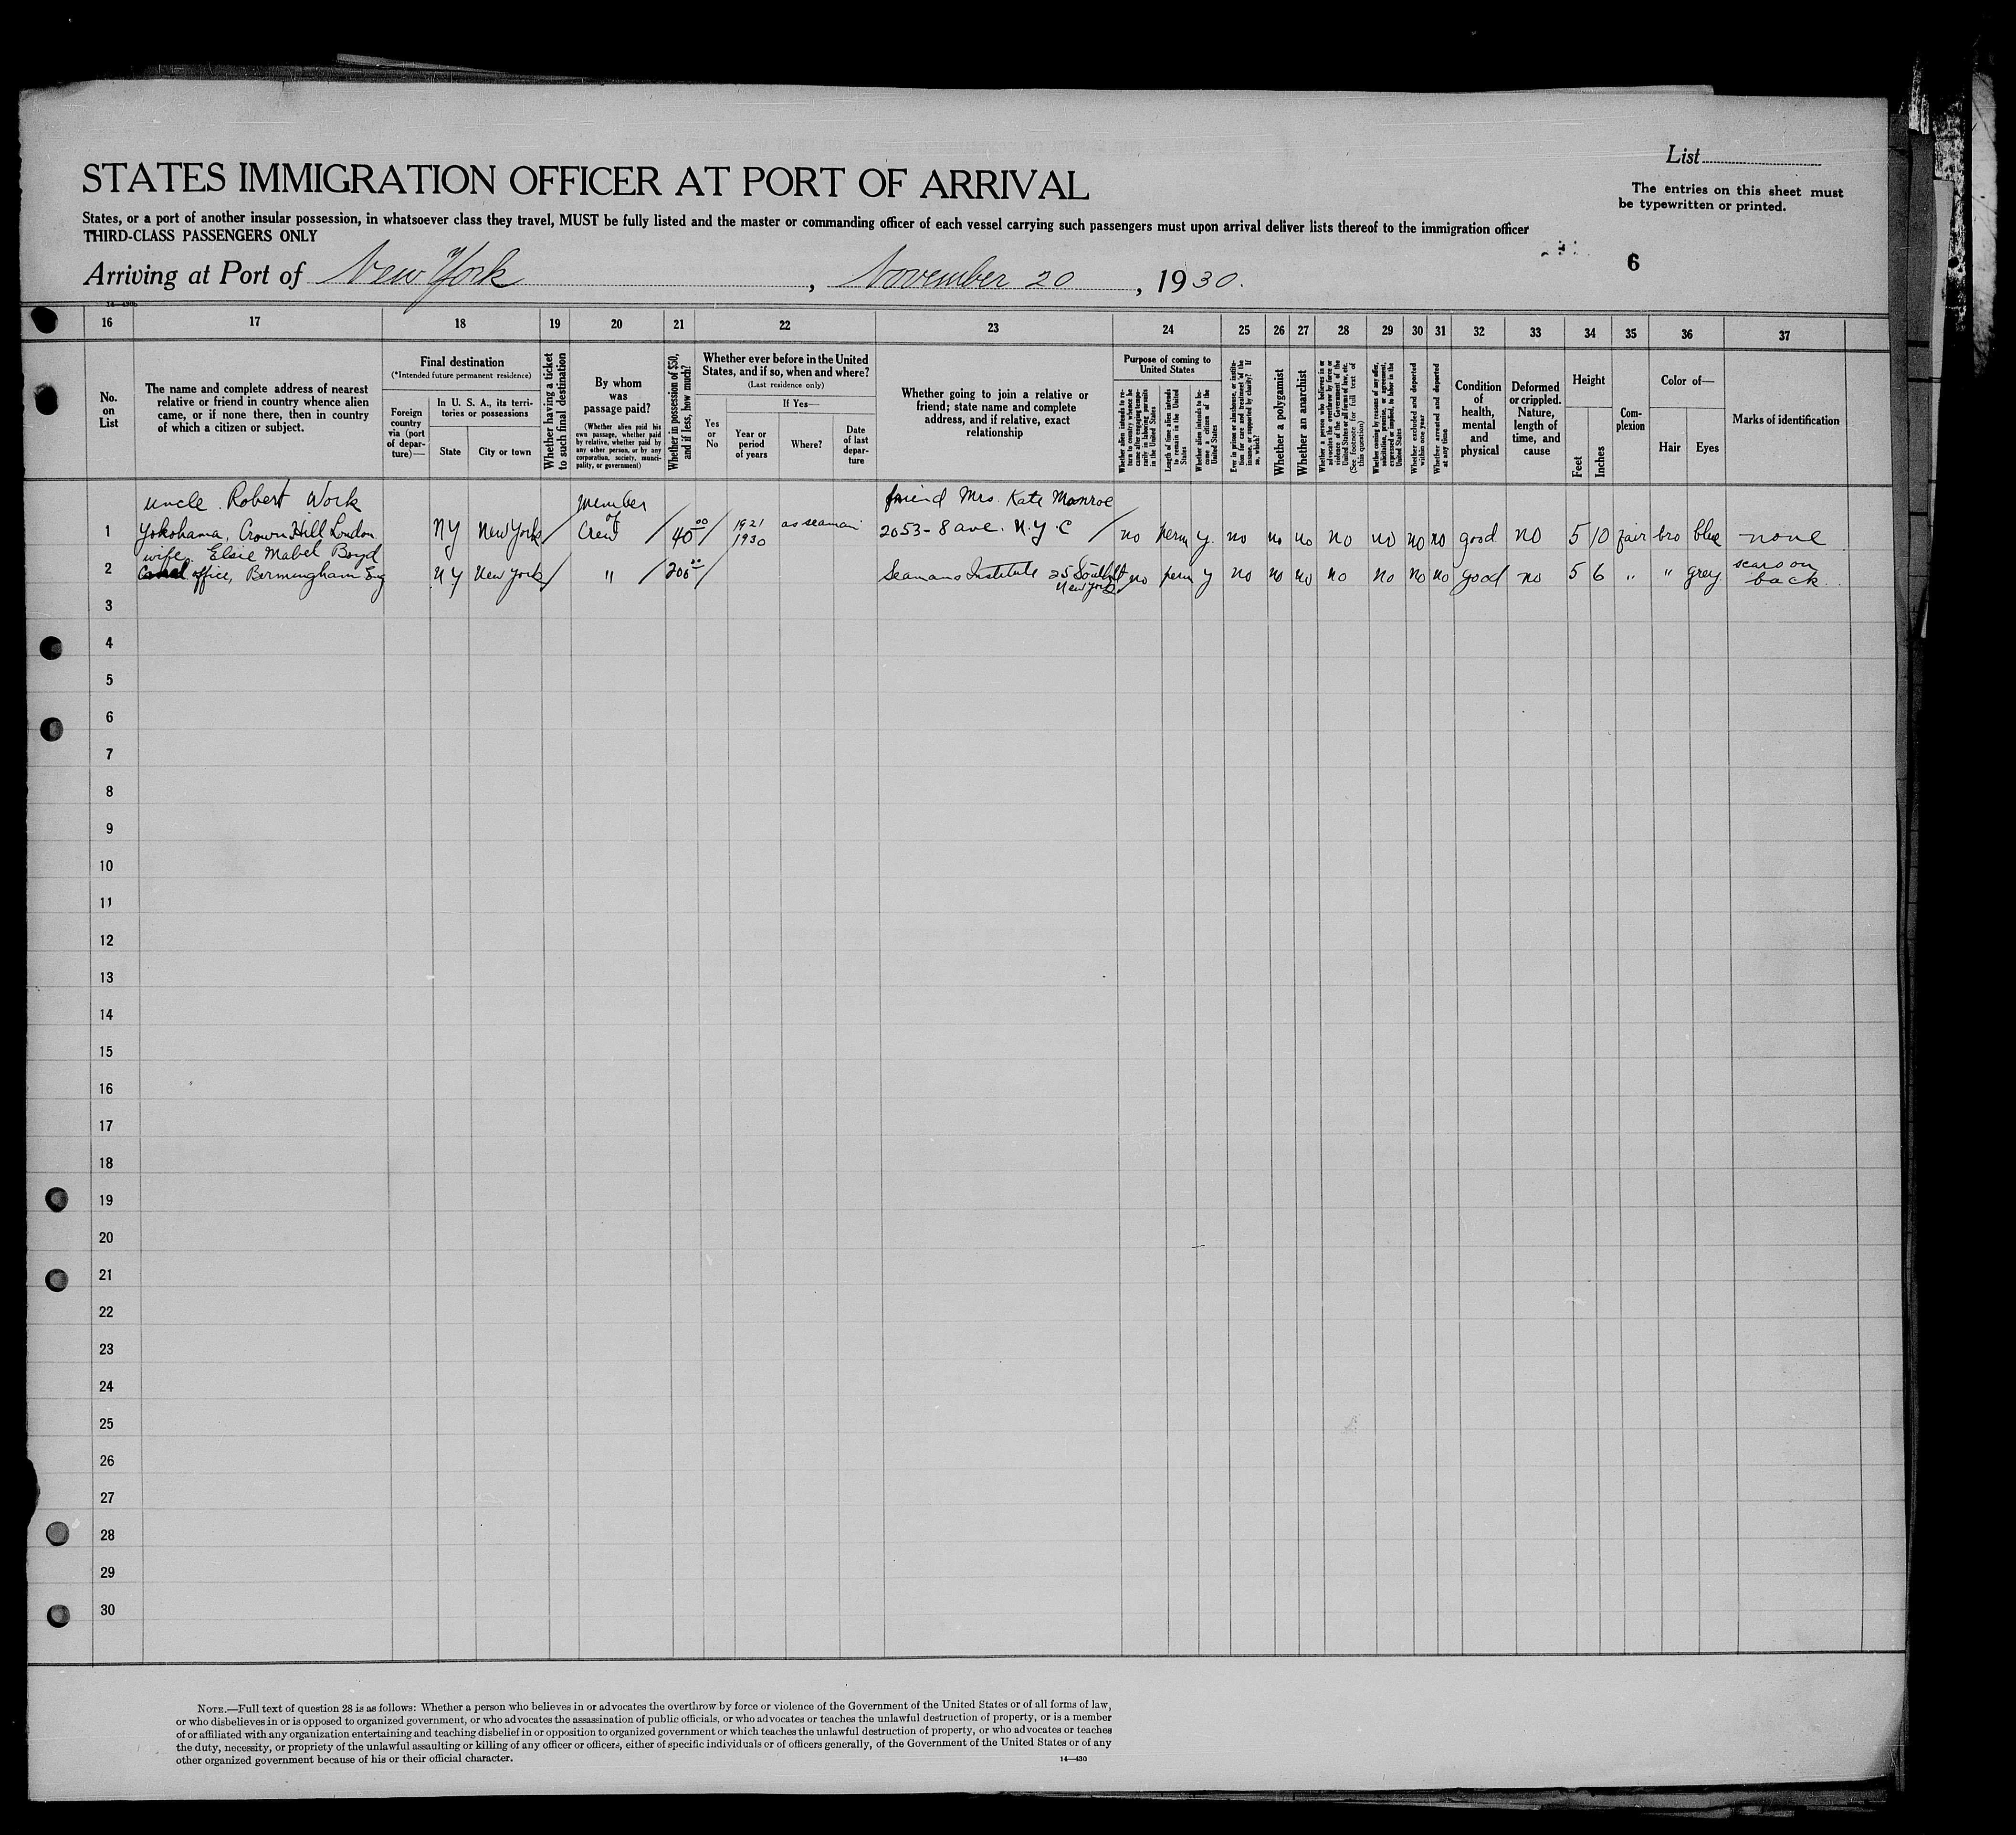 List
STATES IMMIGRATION OFFICER AT PORT OF ARRIVAL
The entries on this sheet must
be typewritten or printed.
States, or a port of another insular possession, in whatsoever class they travel, MUST be fully listed and the master or commanding officer of each vessel carrying such passengers must upon arrival deliver lists thereof to the immigration officer
THIRD-CLASS PASSENGERS ONLY
6
Arriving at Port of New York, November 20, 1930.
16 17 18 19 20 21 22 23 24 25 26 27 28 29 30 31 32 33 34 35 36 37
No. on List
The name and complete address of nearest relative or friend in country whence alien came, or if none there, then in country of which a citizen or subject.
Final destination
(*Intended future permanent residence)
Foreign country via (port of departure)—
In U. S. A., its territories or possessions
State
City or town
Whether having a ticket to such final destination
By whom was passage paid?
(Whether alien paid his own passage, whether paid by relative, whether paid by any other person, or by any corporation, society, municipality, or government)
Whether in possession of $50, and if less, how much?
Whether ever before in the United States, and if so, when and where?
(Last residence only)
Yes or No
If Yes—
Year or period of years
Where?
Date of last departure
Whether going to join a relative or friend; state name and complete address, and if relative, exact relationship
Purpose of coming to United States
Whether alien intends to return to country whence he came after engaging temporarily in laboring pursuits in the United States
Length of time alien intends to remain in the United States
Whether alien intends to become a citizen of the United States
Ever in prison or almshouse, or institution for care and treatment of the insane, or supported by charity? If so, which?
Whether a polygamist
Whether an anarchist
Whether a person who believes in or advocates the overthrow by force or violence of the Government of the United States or all forms of law, etc. (See footnote for full text of this question)
Whether coming by reason of any offer, solicitation, promise, or agreement, expressed or implied, to labor in the United States
Whether excluded and deported within one year
Whether arrested and deported at any time
Condition of health, mental and physical
Deformed or crippled. Nature, length of time, and cause
Height
Feet
Inches
Complexion
Color of—
Hair
Eyes
Marks of identification
uncle. Robert Work member friend Mrs. Kate Monroe
1 Yokohama, Crown Hill London NY New York / of Crew / 40 00 / 1921 1930 as seaman 2053 - 8 ave. N.Y.C / no perm y. no no no no no no no good no 5 10 fair bro blue none
wife, Elsie Mabel Boyd
2 office, Bermingham Eng NY New York / " / 200 00 / Seamans Institute 25 South St New York no perm y no no no no no no no good no 5 6 " " grey scars on back
3
4
5
6
7
8
9
10
11
12
13
14
15
16
17
18
19
20
21
22
23
24
25
26
27
28
29
30
NOTE.—Full text of question 28 is as follows: Whether a person who believes in or advocates the overthrow by force or violence of the Government of the United States or of all forms of law,
or who disbelieves in or is opposed to organized government, or who advocates the assassination of public officials, or who advocates or teaches the unlawful destruction of property, or is a member
of or affiliated with any organization entertaining and teaching disbelief in or opposition to organized government or which teaches the unlawful destruction of property, or who advocates or teaches
the duty, necessity, or propriety of the unlawful assaulting or killing of any officer or officers, either of specific individuals or of officers generally, of the Government of the United States or of any
other organized government because of his or their official character.
14—430